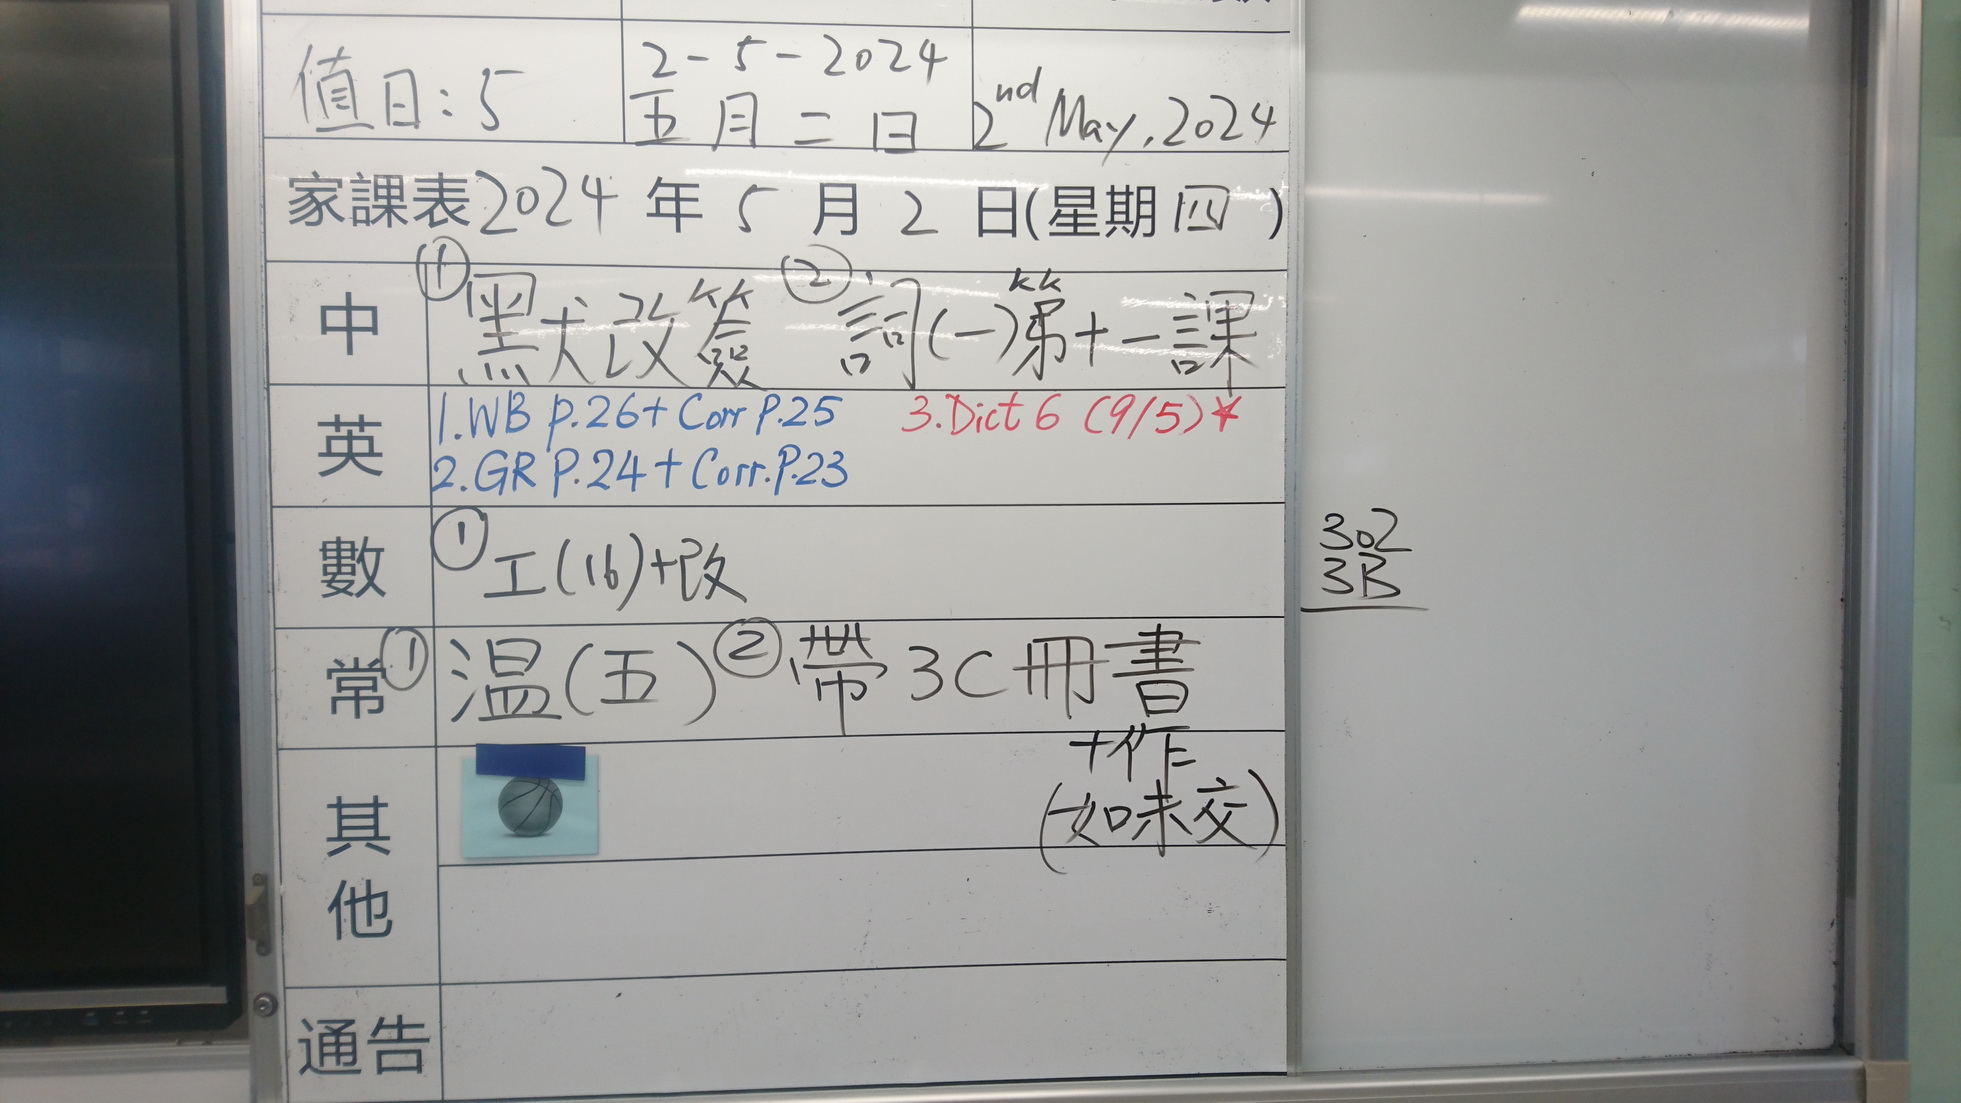 值日:5
2-5-2024
五月二日
2nd May, 2024
家課表2024年5月2日(星期四)
中
①黑犬改簽 ②詞(一)第十一課
英
1.WB p.26+ Corr P.25 3.Dict 6 (9/5)*
2.GR P.24+ Corr.P.23
數
①工(16)+改
常
①溫(五)②帶3C冊書
+作
(如未交)
其他
通告
302
3B